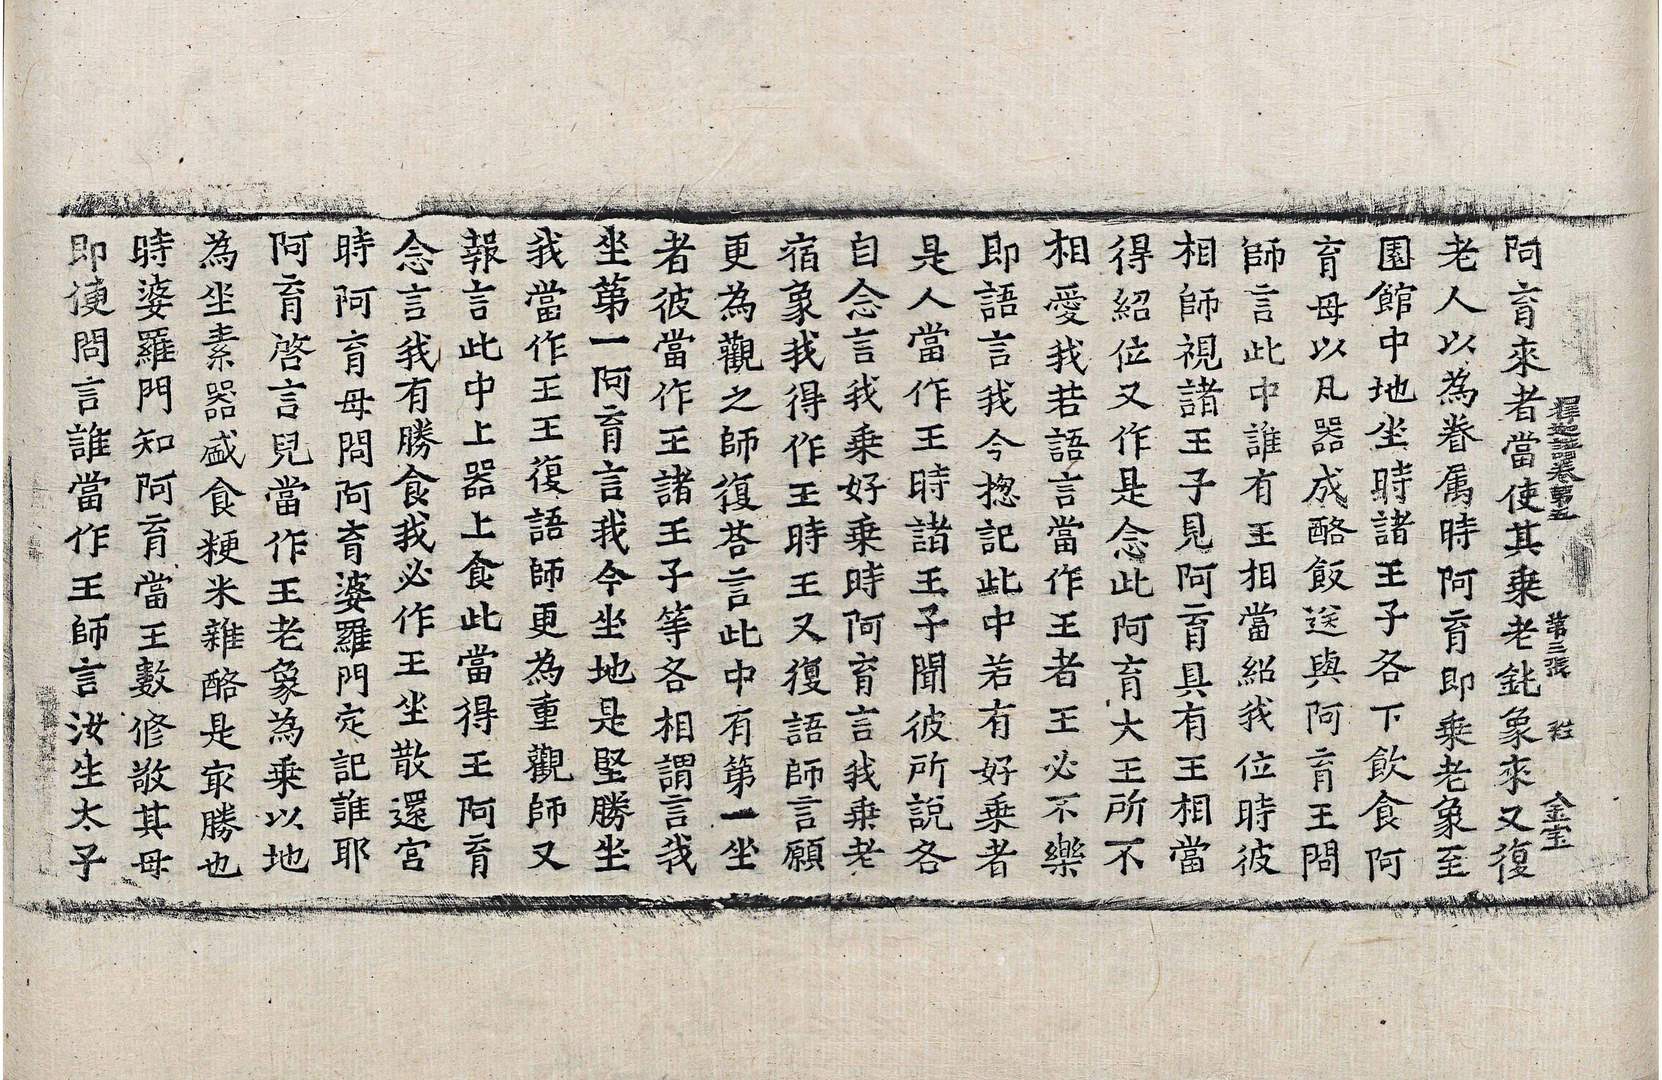 釋迦譜卷第五 第三張 金宝
阿育來者當使其乗老鈍象來又復
老人以為眷属時阿育即乗老象至
園館中地坐時諸王子各下飲食阿
育母以凡器成酪飯送與阿育王問
師言此中誰有王相當紹我位時彼
相師視諸王子見阿育具有王相當
得紹位又作是念此阿育大王所不
相愛我若語言當作王者王必不樂
即語言我今揔記此中若有好乗者
是人當作王時諸王子聞彼所說各
自念言我乗好乗時阿育言我乗老
宿象我得作王時王又復語師言願
更為觀之師復荅言此中有第一坐
者彼當作王諸王子等各相謂言我
坐第一阿育言我今坐地是堅勝坐
我當作王王復語師更為重觀師又
報言此中上器上食此當得王阿育
念言我有勝食我必作王坐散還宮
時阿育母問阿育婆羅門定記誰耶
阿育啓言兒當作王老象為乗以地
為坐素器盛食粳米雜酪是㝡勝也
時婆羅門知阿育當王數修敬其母
即使問言誰當作王師言汝生太子